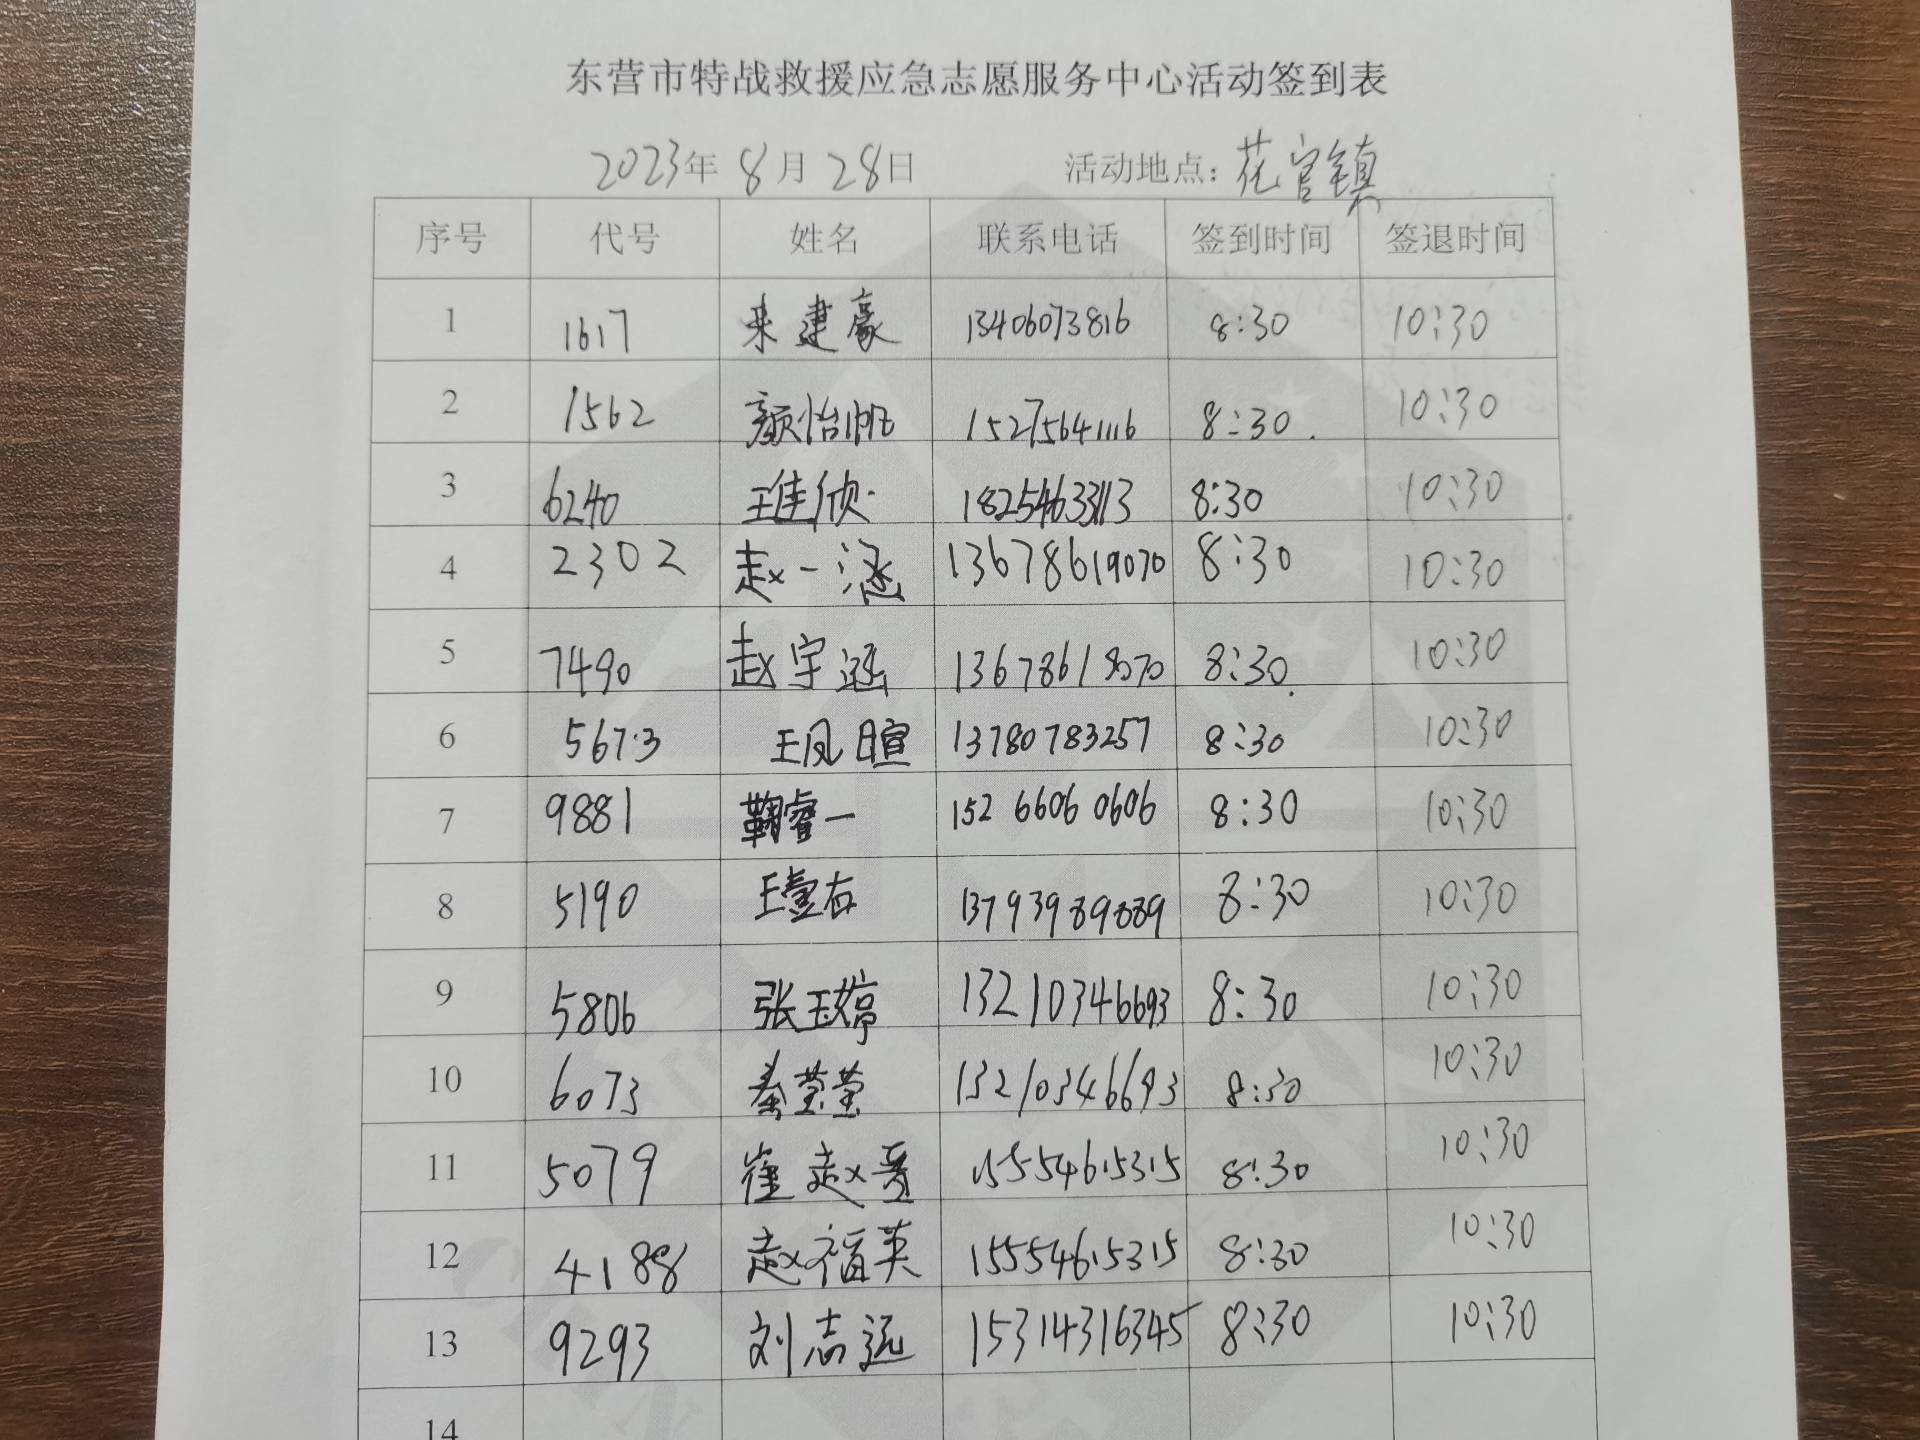 东营市特战救援应急志愿服务中心活动签到表
2023年 8月 28日 活动地点：花官镇
序号 代号 姓名 联系电话 签到时间 签退时间
1 1617 来建豪 13406073816 8:30 10:30
2 1562 颜怡帆 15275641116 8:30 10:30
3 6240 王佳欣 18254633113 8:30 10:30
4 2302 赵一涵 13678619070 8:30 10:30
5 7490 赵宇涵 13678619070 8:30 10:30
6 5673 王凤暄 13780783257 8:30 10:30
7 9881 鞠睿一 152 6606 0606 8:30 10:30
8 5190 王壹右 13793989889 8:30 10:30
9 5806 张玉婷 13210346693 8:30 10:30
10 6073 秦莹莹 13210346693 8:30 10:30
11 5079 崔赵 15554615315 8:30 10:30
12 4188 赵福英 15554615315 8:30 10:30
13 9293 刘志远 15314316345 8:30 10:30
14